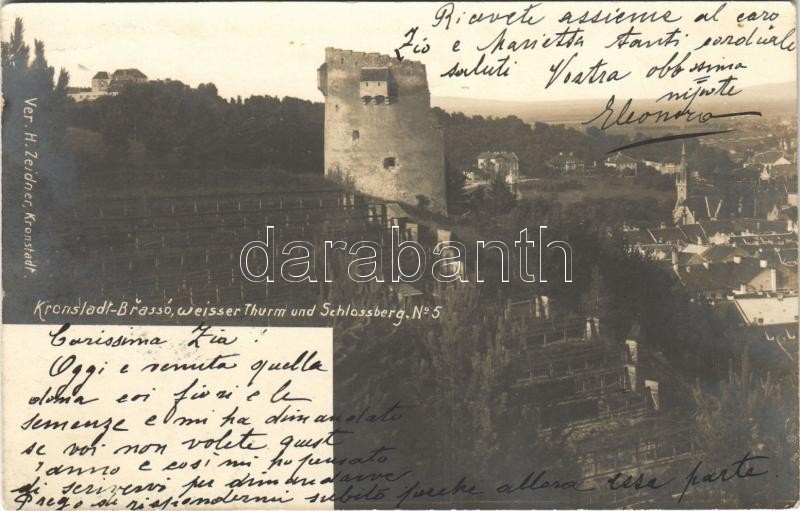 Ricevete assieme al caro
Zio e Marietta tanti cordiali
saluti Vostra obbssima
nipote
Eleonora
Ver. H. Zeidner, Kronstadt.
darabanth
Kronstadt-Brassó, weisser Thurm und Schlossberg. No 5
Carissima Zia!
Oggi e venuta quella
dona coi fiori e le
semenze e mi ha dimandato
se voi non volete quest
anno e così mi ho pensato
di scrivervi per dimandarve
Prego di rispondermi subito perche allora essa parte.